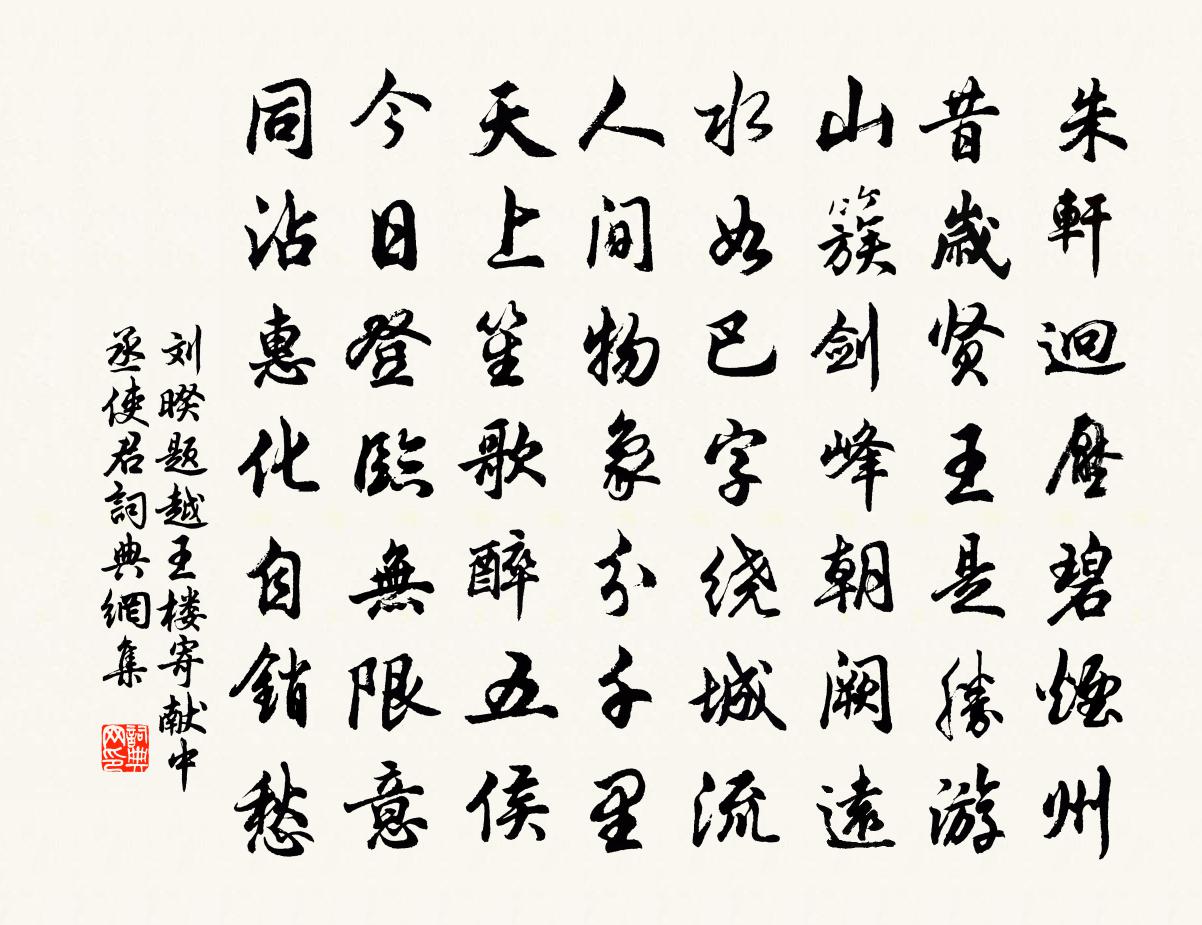 朱軒迥壓碧煙州
昔歲贤王是勝游
山簇剑峰朝阙遠
水如巴字绕城流
人间物象分千里
天上笙歌醉五侯
今日登臨無限意
同沾惠化自銷愁
刘暌题越王楼寄献中
丞使君詞典網集
詞典网印